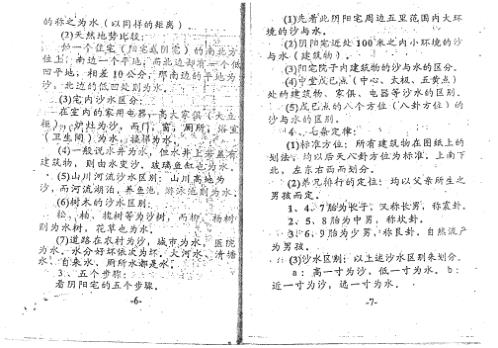 的称之为水（以同样的距离）
(2)天然地势比较：
如一个住宅（阳宅或阴宅）的南北方
位上，南边一个平地，而北边却有一个低
凹平地，相差10公分，那南边的平地为
沙，北边的低凹处则为水。
(3)宅内沙水区分：
在室内的家用电器，高大家俱（大立
柜），炉灶为沙，而门，窗，厕所，浴室
（卫生间）为水，楼梯为水。
(4)一般说水井为水，但水井上若盖有
建筑物，则由水变沙，玻璃鱼缸也为水。
(5)山川河流沙水区分：山川高地为
沙，而河流湖泊，养鱼池，游泳池则为水。
(6)树木的沙水区分：
松，柏，槐树等为沙树，而柳，杨树
则为水树，花草也为水。
(7)道路在农村为沙，城市为水，医院
为水。水分好坏依次为坏，大河水，清塘
水，自来水，厕所水都是水。
3、五个步骤：
看阴阳宅的五个步骤。
-6-
(1)先看此阴阳宅周边五里范围内大环
境的沙与水。
(2)阴阳宅近处100米之内小环境的沙
与水（建筑物）。
(3)阳宅院子内建筑物的沙与水的区分。
(4)中堂戊已点（中心、太极、五黄点）
处的建筑物、家俱、电器等沙水的区别。
(5)戊已点的八个方位（八卦方位）的
沙与水的区别。
4、七条定律：
(1)标准方位：所有建筑物在图纸上的
划法，均以后天八卦方位为标准，上南下
北，左东右西而划分。
(2)弟兄排行的定位：均以父亲所生之
男孩而定。
1、4、7胎为长子，又称长男，称震卦。
2、5、8胎为中男，称坎卦。
3、6、9胎为少男，称艮卦，自然流产
为男孩。
(3)沙水区别：以上述沙水区别来划分。
a：高一寸为沙，低一寸为水。b：
近一寸为沙，远一寸为水。
-7-